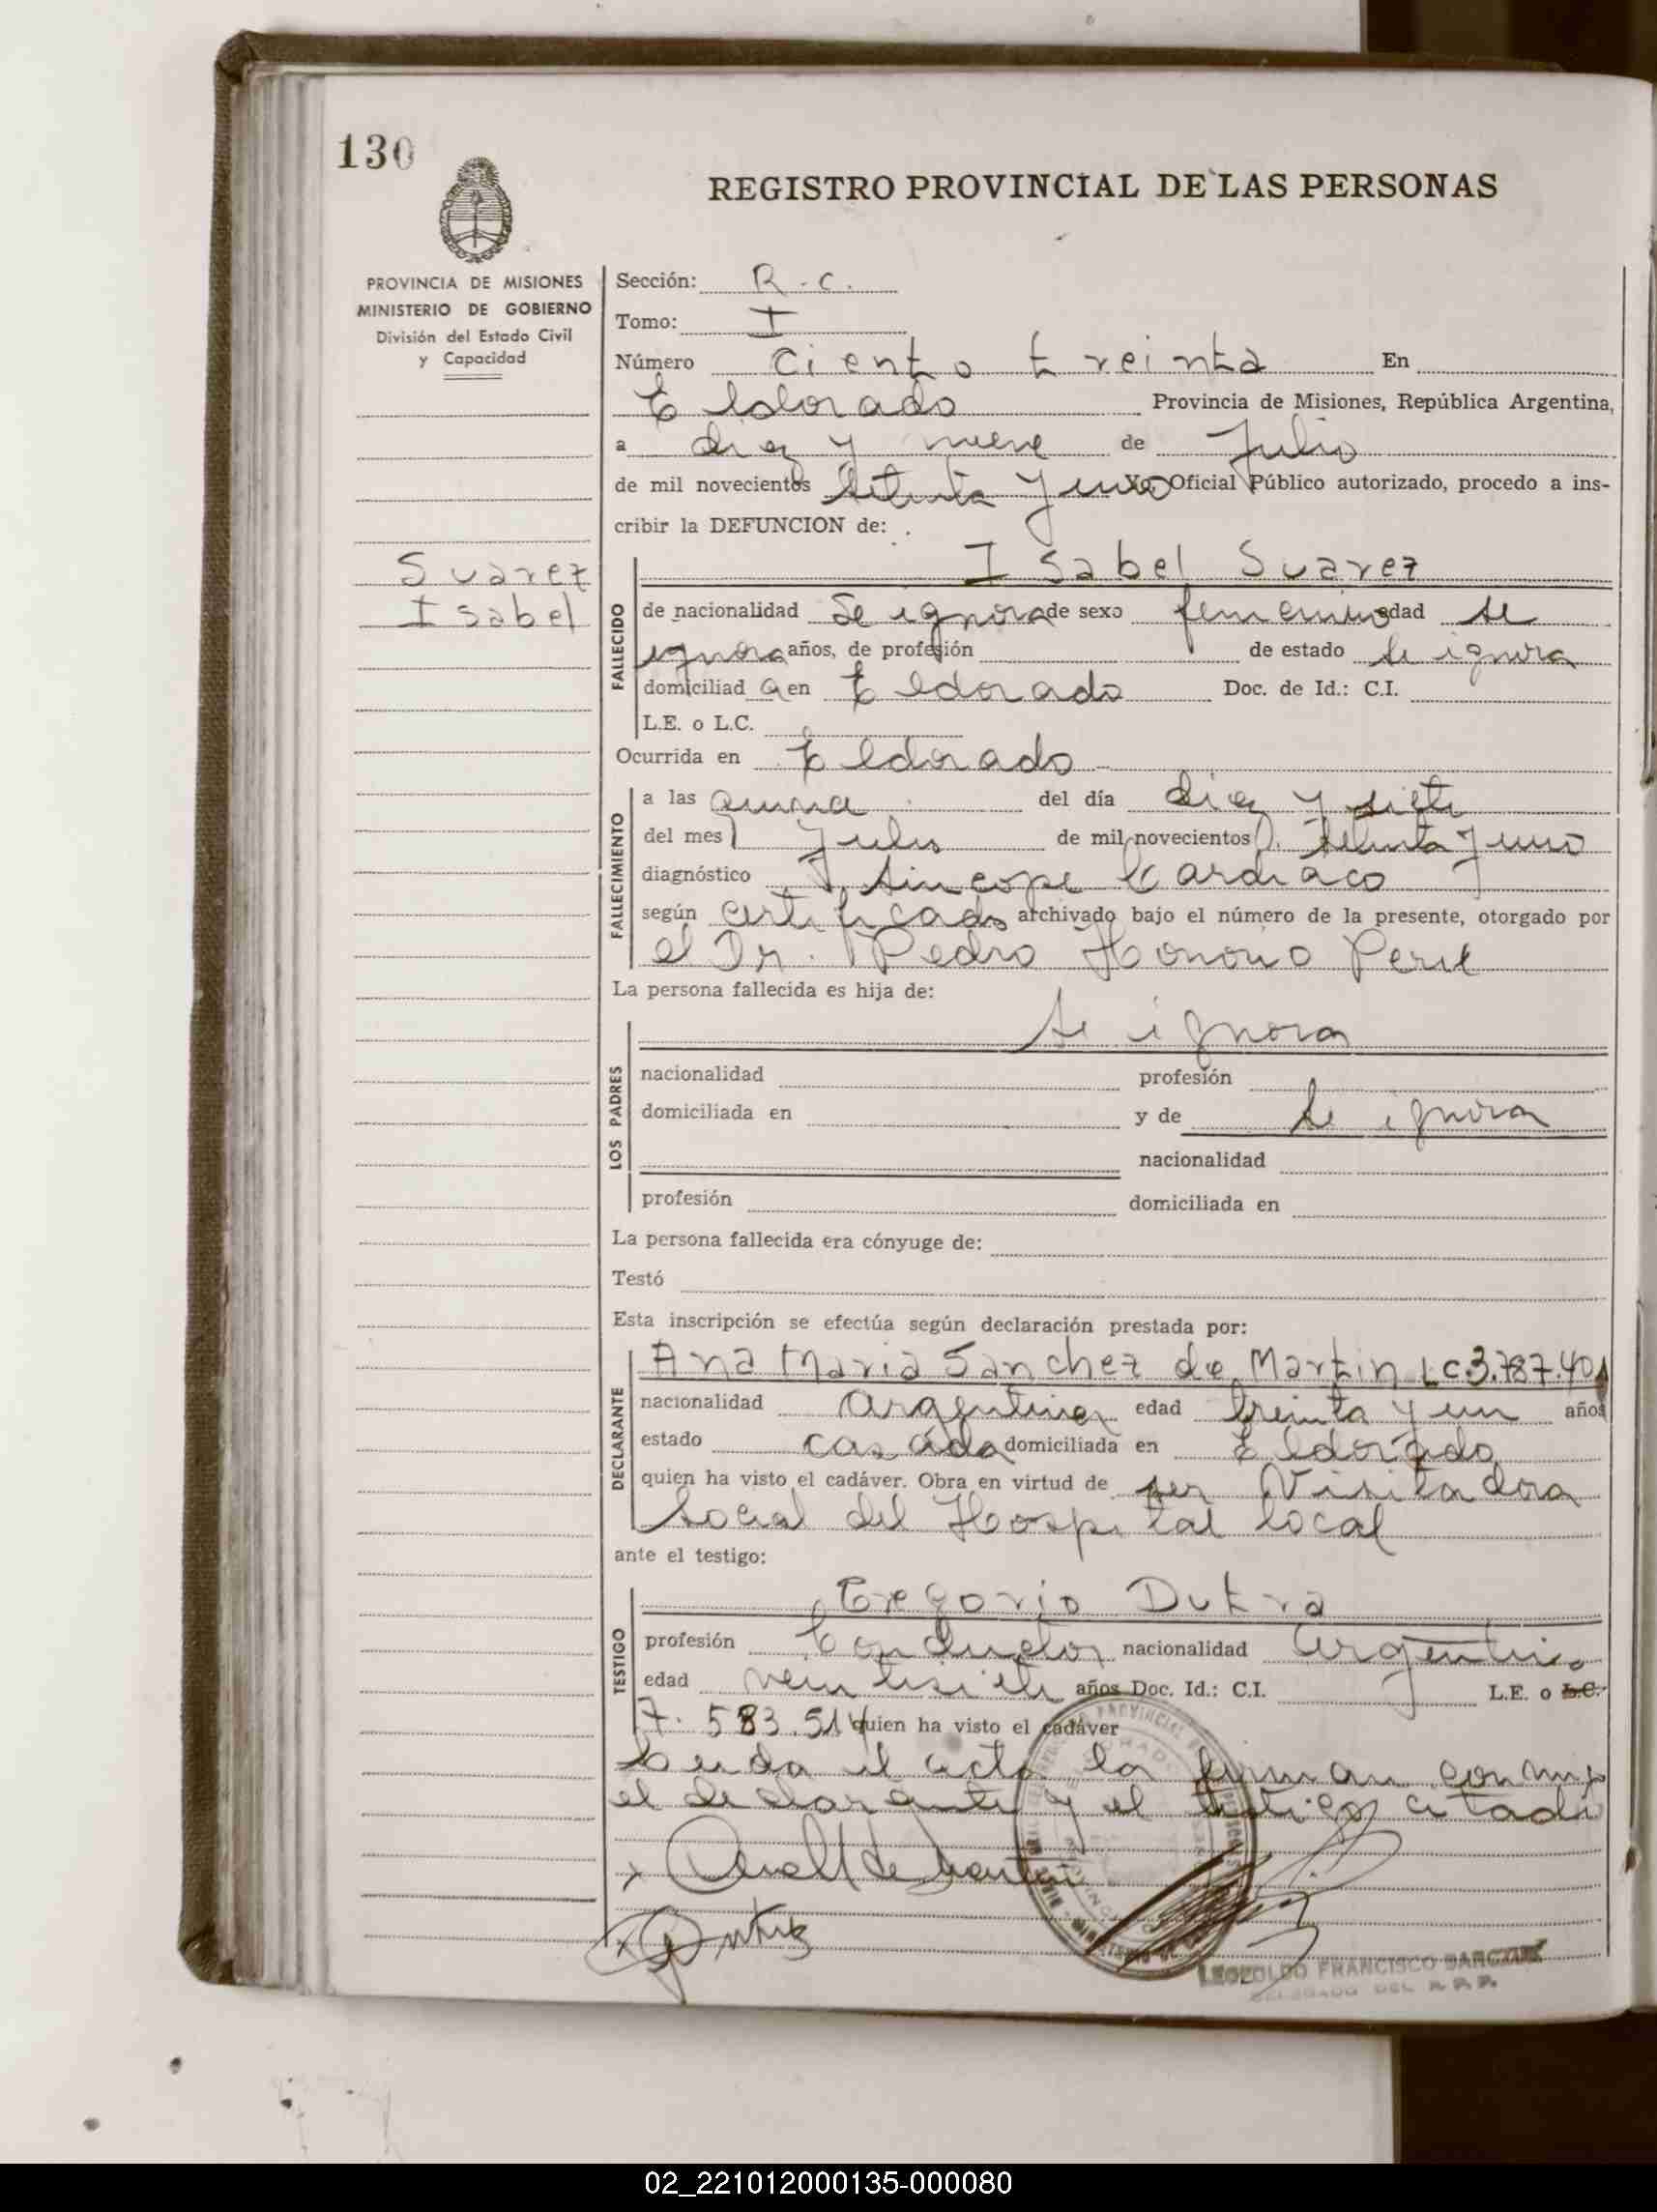 130
REGISTRO PROVINCIAL DE LAS PERSONAS
PROVINCIA DE MISIONES
MINISTERIO DE GOBIERNO
División del Estado Civil
y Capacidad
Suarez
Isabel
Sección: R.C.
Tomo: I
Número Ciento treinta En
Eldorado Provincia de Misiones, República Argentina,
a diez y nueve de Julio
de mil novecientos setenta y uno Yo, Oficial Público autorizado, procedo a ins-
cribir la DEFUNCION de:
Isabel Suarez
FALLECIDO
de nacionalidad Se ignora de sexo femenino edad se
ignora años, de profesión de estado se ignora
domiciliad a en Eldorado Doc. de Id.: C.I.
L.E. o L.C.
Ocurrida en Eldorado
FALLECIMIENTO
a las del día diez y siete
del mes Julio de mil novecientos setenta y uno
diagnóstico Sincope Cardiaco
según certificado archivado bajo el número de la presente, otorgado por
el Dr. Pedro Honorio
La persona fallecida es hija de:
LOS PADRES
se ignora
nacionalidad profesión
domiciliada en y de se ignora
nacionalidad
profesión domiciliada en
La persona fallecida era cónyuge de:
Testó
Esta inscripción se efectúa según declaración prestada por:
DECLARANTE
Ana Maria Sanchez de Martin LC 3.787.401
nacionalidad argentina edad treinta y un años
estado casada domiciliada en Eldorado
quien ha visto el cadáver. Obra en virtud de ser Visitadora
Social del Hospital local
ante el testigo:
TESTIGO
Gregorio Dutra
profesión Conductor nacionalidad argentino
edad veintisiete años Doc. Id.: C.I. L.E. o L.C.
7.583.514 quien ha visto el cadáver
Leida el acta la firman conmigo
el declarante y el testigo citado
LEOPOLDO FRANCISCO
DELEGADO DEL R.P.P.
02_221012000135-000080